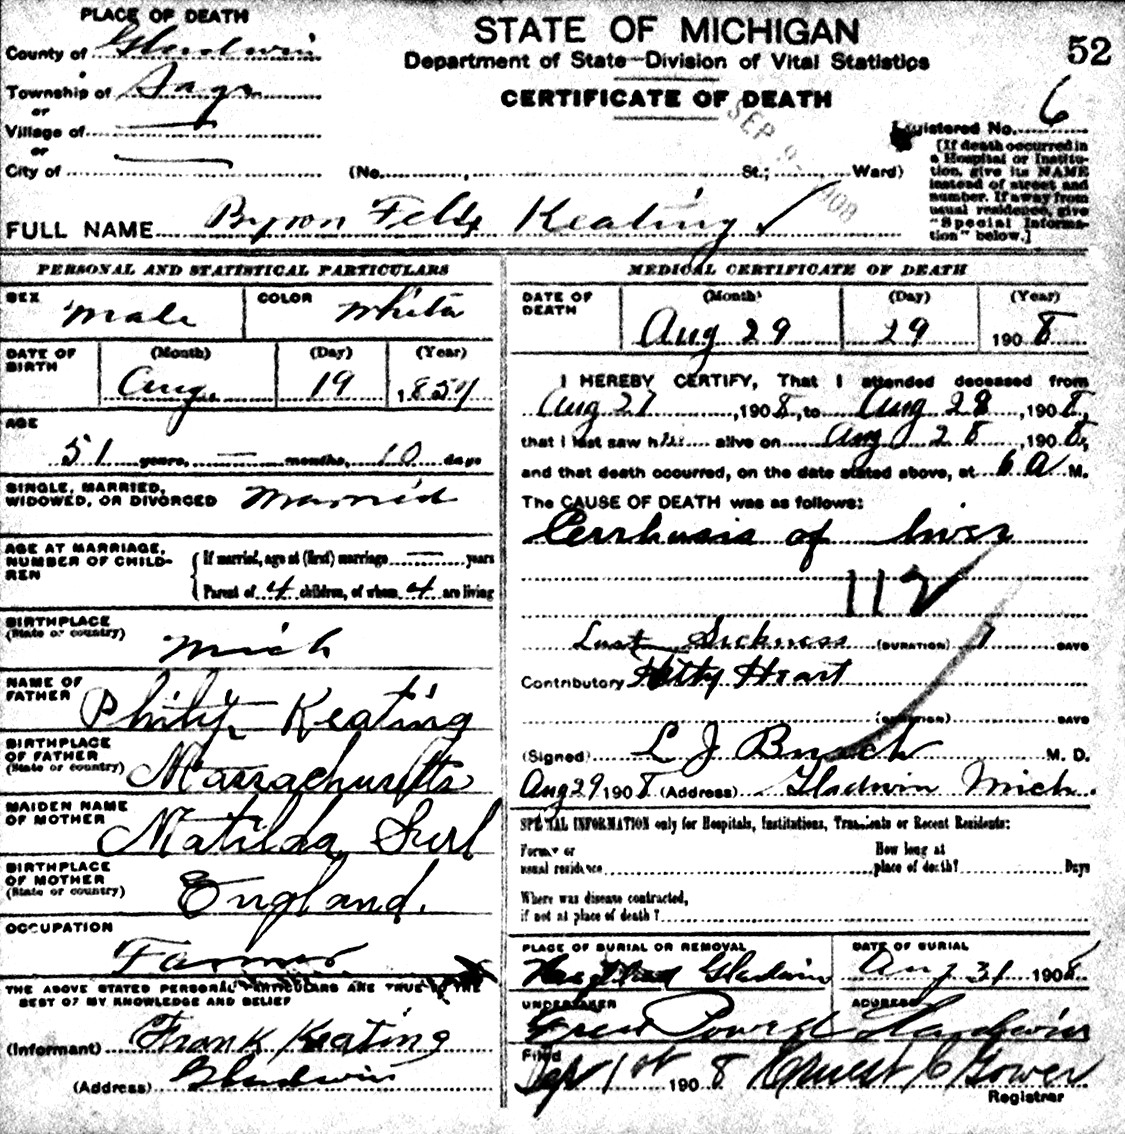 PLACE OF DEATH
County of Gladwin
Township of Sage
or
Village of
or
City of
STATE OF MICHIGAN
Department of State—Division of Vital Statistics
CERTIFICATE OF DEATH
52
SEP 1908
Registered No. 6
(No. , St.; Ward)
[If death occurred in
a Hospital or Institu-
tion, give its NAME
instead of street and
number. If away from
usual residence, give
"Special Informa-
tion" below.]
FULL NAME Byron Felix Keating
PERSONAL AND STATISTICAL PARTICULARS
SEX Male COLOR White
DATE OF BIRTH (Month) Aug. (Day) 19 (Year) 1857
AGE
51 years, — months, 10 days
SINGLE, MARRIED,
WIDOWED, OR DIVORCED Married
AGE AT MARRIAGE,
NUMBER OF CHILD-
REN
If married, age at (first) marriage — years
Parent of 4 children, of whom 4 are living
BIRTHPLACE
(State or country) Mich
NAME OF
FATHER Philip Keating
BIRTHPLACE
OF FATHER
(State or country) Massachusetts
MAIDEN NAME
OF MOTHER Matilda Surl
BIRTHPLACE
OF MOTHER
(State or country) England.
OCCUPATION
Farmer
THE ABOVE STATED PERSONAL PARTICULARS ARE TRUE TO THE
BEST OF MY KNOWLEDGE AND BELIEF
(Informant) Frank Keating
(Address) Gladwin
MEDICAL CERTIFICATE OF DEATH
DATE OF DEATH (Month) Aug 29 (Day) 29 (Year) 1908
I HEREBY CERTIFY, That I attended deceased from
Aug 27, 1908, to Aug 28, 1908,
that I last saw him alive on Aug 28, 1908,
and that death occurred, on the date stated above, at 6 A M.
The CAUSE OF DEATH was as follows:
Cerrhusis of liver
112
Last Sickness (DURATION) 7 DAYS
Contributory Fatty Heart
(DURATION) DAYS
(Signed) L J Busch M. D.
Aug 29 1908 (Address) Gladwin Mich.
SPECIAL INFORMATION only for Hospitals, Institutions, Transients or Recent Residents:
Former or
usual residence
How long at
place of death? Days
Where was disease contracted,
if not at place of death?
PLACE OF BURIAL OR REMOVAL
Gladwin
DATE OF BURIAL
Aug 31 1908
UNDERTAKER
ADDRESS
Gladwin
Filed
Sep 1st 1908 Ernest C Gower
Registrar